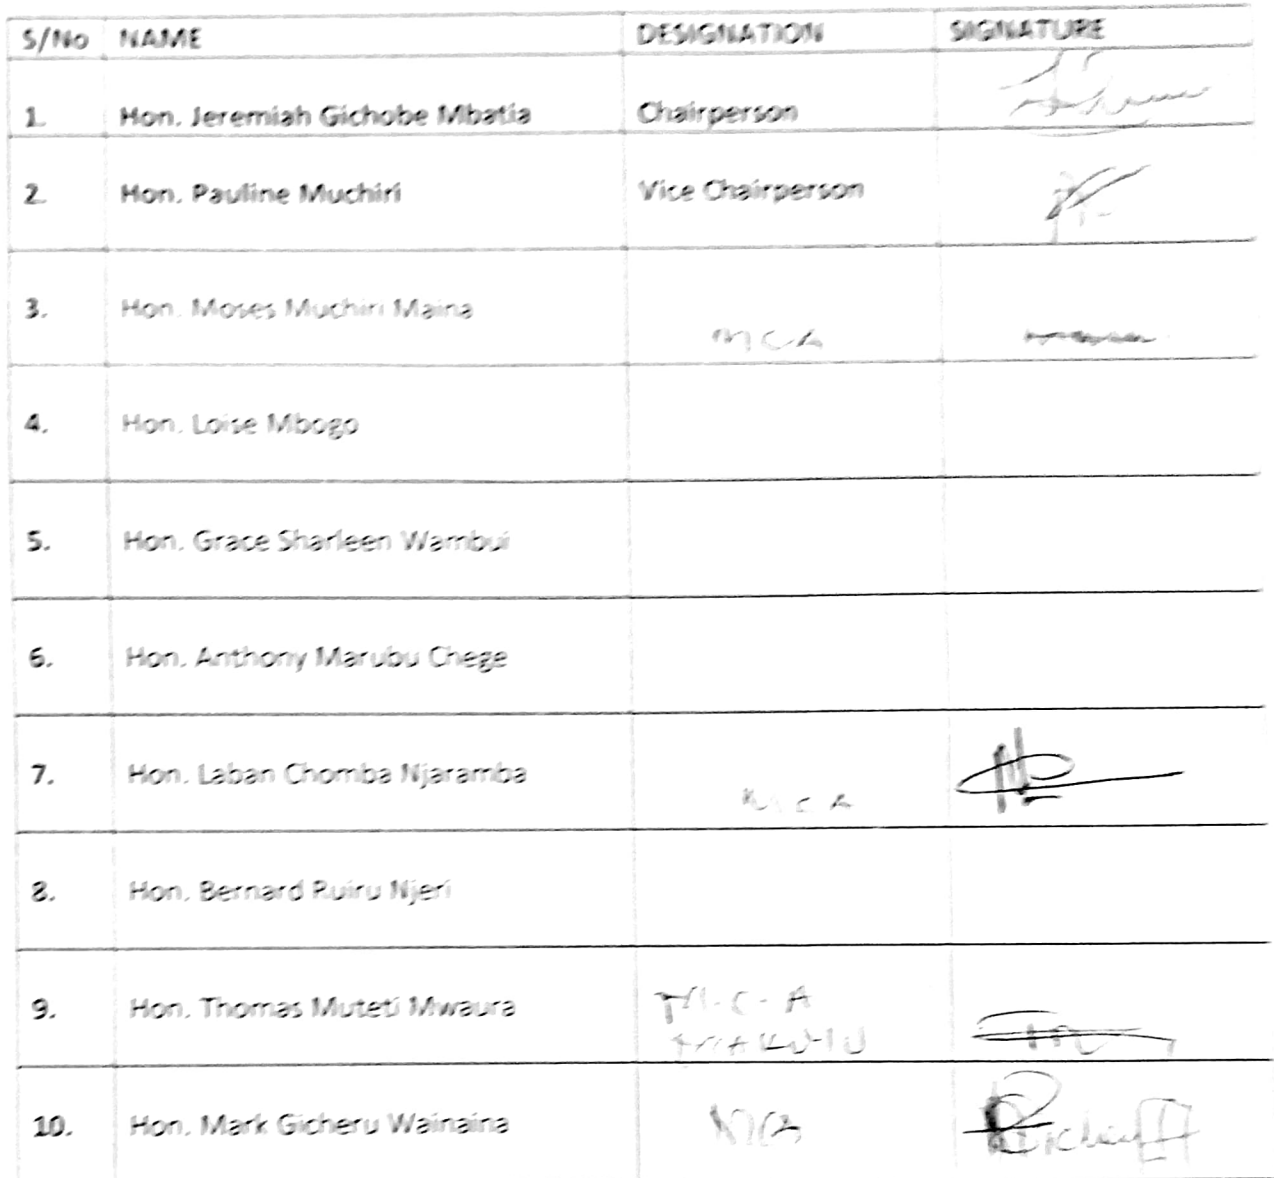 S/No NAME DESIGNATION SIGNATURE
1. Hon. Jeremiah Gichobe Mbatia Chairperson
2. Hon. Pauline Muchiri Vice Chairperson
3. Hon. Moses Muchiri Maina MCA
4. Hon. Loise Mbogo
5. Hon. Grace Sharleen Wambui
6. Hon. Anthony Marubu Chege
7. Hon. Laban Chomba Njaramba M.C.A
8. Hon. Bernard Ruiru Njeri
9. Hon. Thomas Muteti Mwaura M.C.A
10. Hon. Mark Gicheru Wainaina MCA